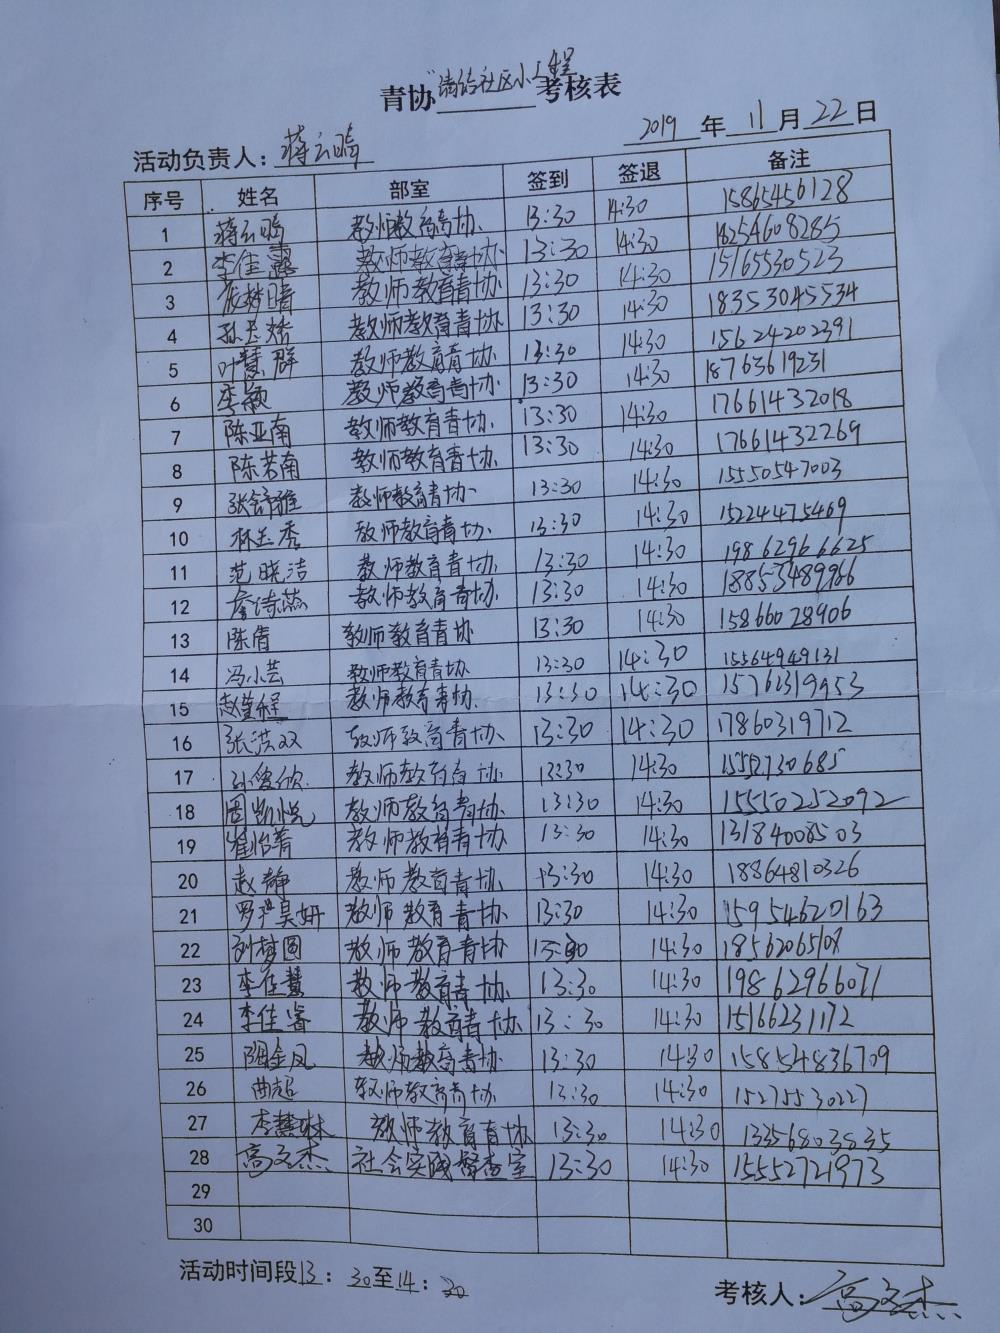 青协"清洁社区小工程考核表
2019 年 11 月 22 日
活动负责人：蒋云鹏
序号 姓名 部室 签到 签退 备注
1 蒋云鹏 教师教育青协 13:30 14:30 15865456128
2 李佳露 教师教育青协 13:30 14:30 18254608285
3 梦晴 教师教育青协 13:30 14:30 15165530523
4 孙玉娇 教师教育青协 13:30 14:30 18353045534
5 叶慧群 教师教育青协 13:30 14:30 15624202391
6 李颖 教师教育青协 13:30 14:30 18763619231
7 陈亚南 教师教育青协 13:30 14:30 17661432018
8 陈若南 教师教育青协 13:30 14:30 17661432269
9 张舒雅 教师教育青协 13:30 14:30 15550547003
10 林玉秀 教师教育青协 13:30 14:30 15224475469
11 范晓洁 教师教育青协 13:30 14:30 19862966625
12 詹诗燕 教师教育青协 13:30 14:30 18853489986
13 陈倩 教师教育青协 13:30 14:30 15866028906
14 冯小芸 教师教育青协 13:30 14:30 15564949131
15 赵 教师教育青协 13:30 14:30 15762319953
16 张洪双 教师教育青协 13:30 14:30 17860319712
17 孙俊欣 教师教育青协 13:30 14:30
18 周凯悦 教师教育青协 13:30 14:30 15550252092
19 崔怡菁 教师教育青协 13:30 14:30 13184008503
20 赵静 教师教育青协 13:30 14:30 18864810326
21 罗洪昊妍 教师教育青协 13:30 14:30 15954620163
22 刘梦圆 教师教育青协 14:30 18562065108
23 李佳慧 教师教育青协 13:30 14:30 19862966071
24 李佳睿 教师教育青协 13:30 14:30 15166231172
25 陶金凤 教师教育青协 13:30 14:30 15854836709
26 曲超 教师教育青协 13:30 14:30 15275530227
27 李慧琳 教师教育青协 13:30 14:30 13356803835
28 高文杰 社会实践督查室 13:30 14:30 15552721973
29
30
活动时间段13：30至14：30
考核人：高文杰